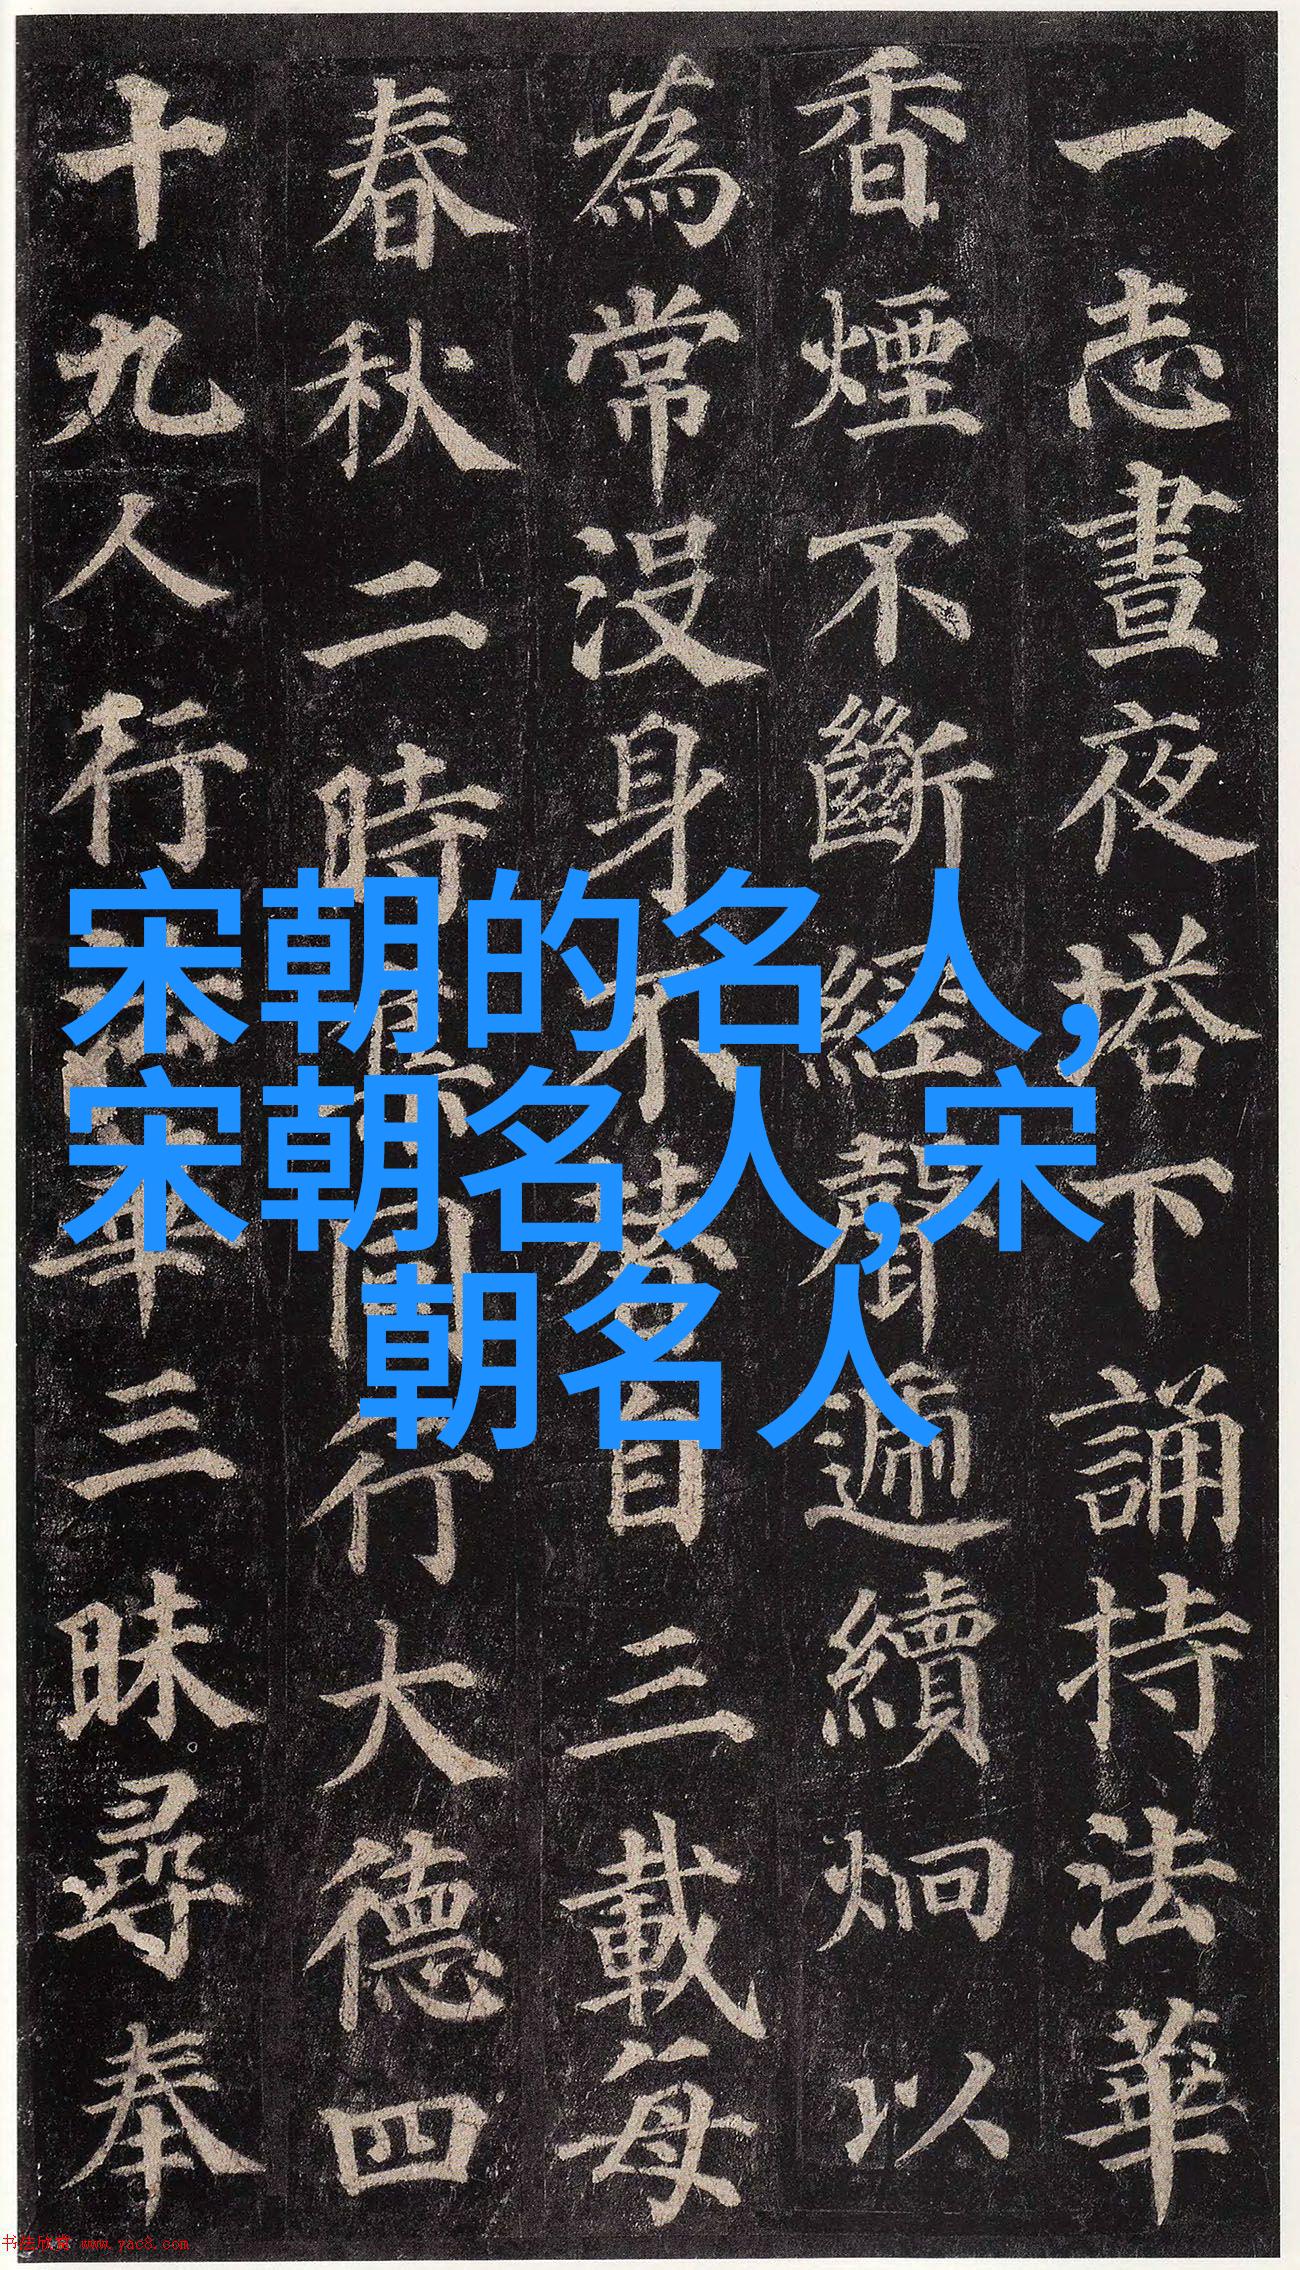 一志晝夜塔下誦持法華
香煙不斷經聲遞續炯以
為常沒身不替自三載每
春秋二時集同行大德四
十九人行法華三昧尋奉
宋朝的名人,
宋朝名人,宋
朝名人
书法欣赏 www.yac8.com